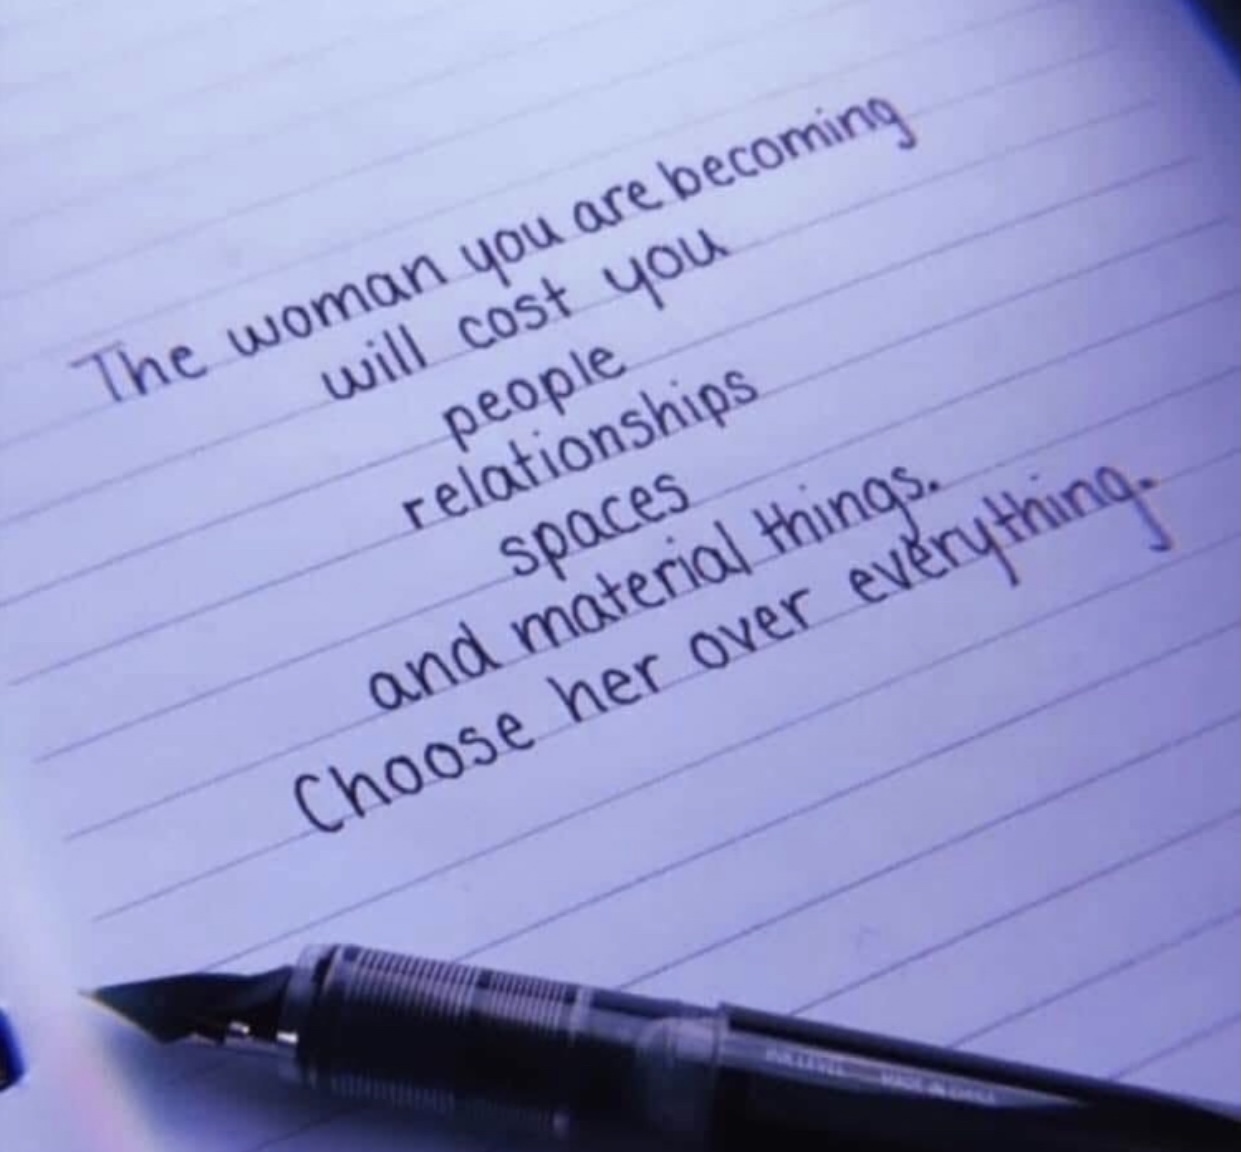 The woman you are becoming
will cost you
people
relationships
spaces
and material things.
Choose her over everything.